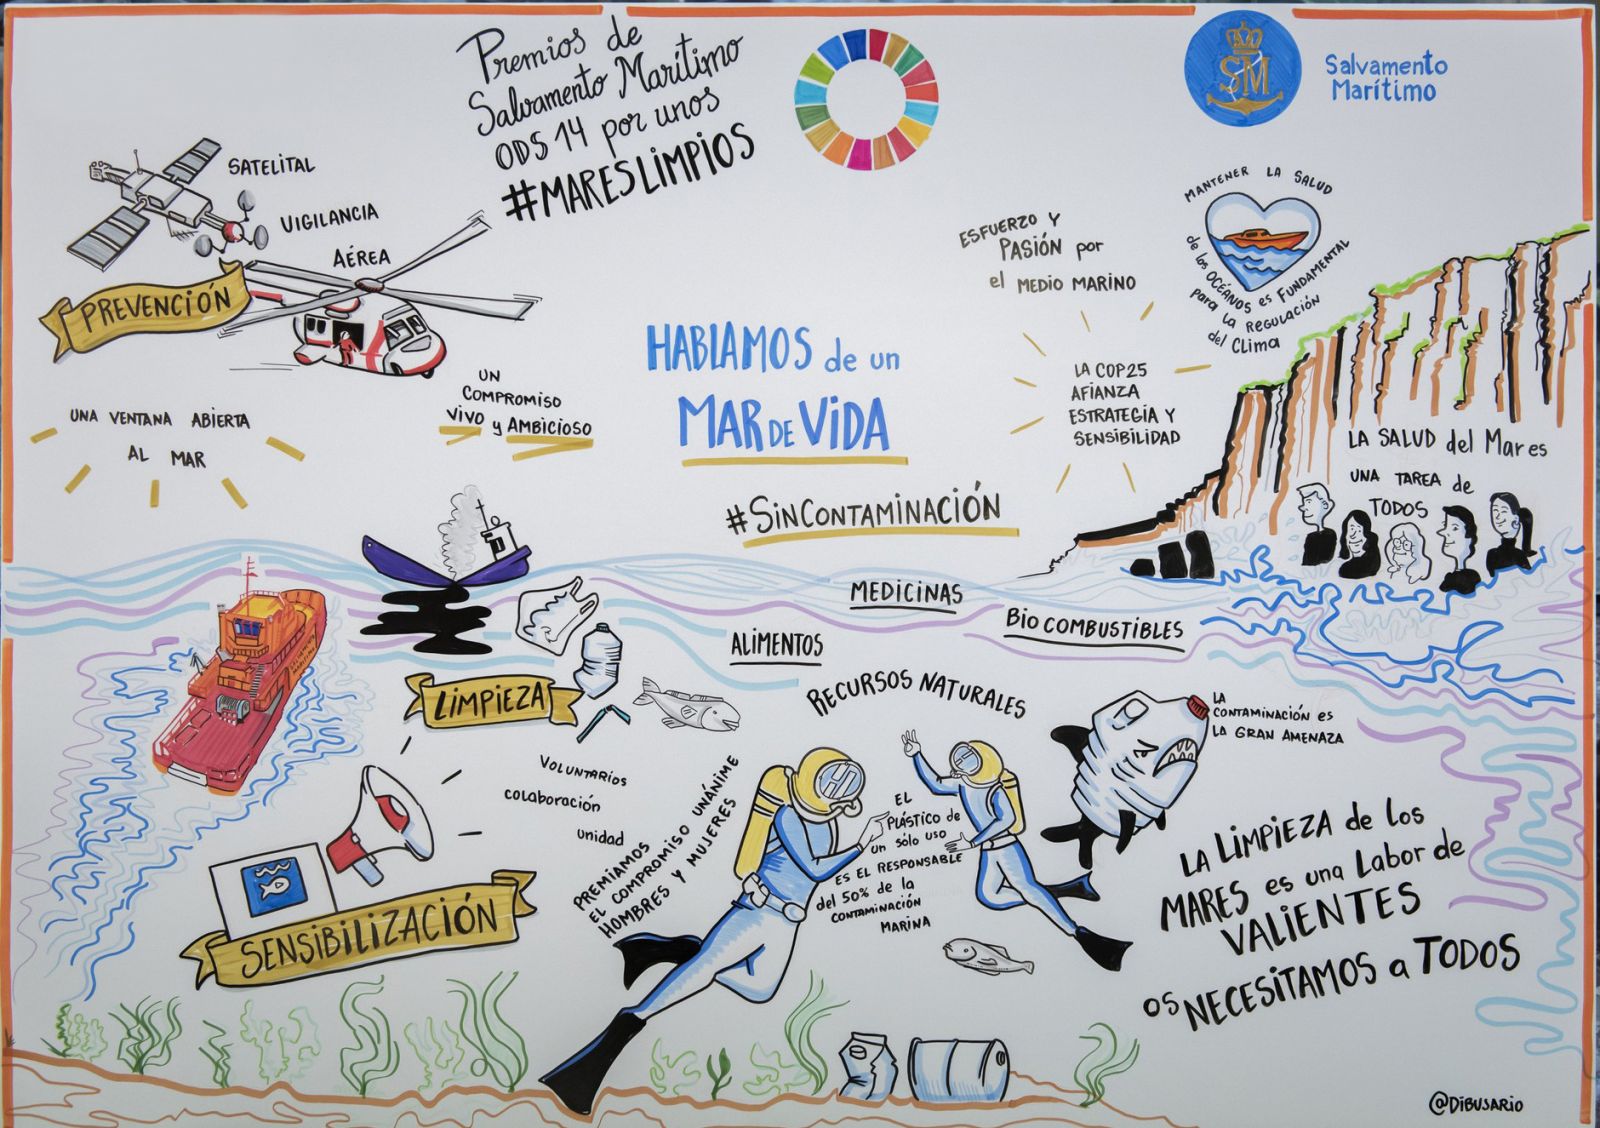 Premios de
Salvamento Marítimo
ODS 14 por unos
#MARESLIMPIOS
SM
Salvamento
Marítimo
SATELITAL
VIGILANCIA
AÉREA
PREVENCIÓN
UN
COMPROMISO
VIVO y AMBICIOSO
UNA VENTANA ABIERTA
AL MAR
HABLAMOS de un
MAR DE VIDA
#SINCONTAMINACIÓN
ESFUERZO Y
PASIÓN por
el MEDIO MARINO
MANTENER LA SALUD
de los OCÉANOS es FUNDAMENTAL
para LA REGULACIÓN
del Clima
LA COP25
AFIANZA
ESTRATEGIA Y
SENSIBILIDAD
LA SALUD del Mar es
UNA TAREA de
TODOS
MEDICINAS
BIOCOMBUSTIBLES
ALIMENTOS
RECURSOS NATURALES
LIMPIEZA
VOLUNTARIOS
COLABORACIÓN
unidad
SENSIBILIZACIÓN
PREMIAMOS
EL COMPROMISO UNÁNIME
HOMBRES Y MUJERES
EL
PLÁSTICO de
un sólo uso
ES EL RESPONSABLE
del 50% de la
CONTAMINACIÓN
MARINA
LA
CONTAMINACIÓN ES
LA GRAN AMENAZA
LA LIMPIEZA de los
MARES es una Labor de
VALIENTES
OS NECESITAMOS a TODOS
@DIBUSARIO